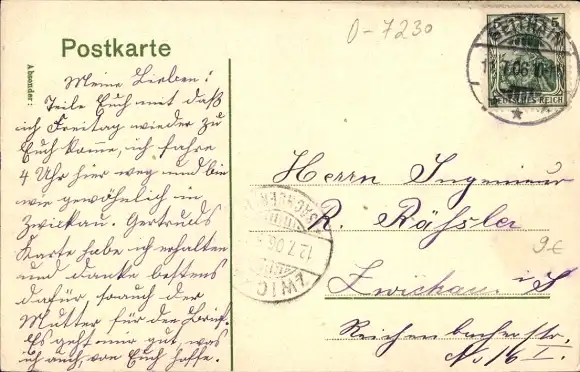 Postkarte
Absender:
Meine Lieben!
Teile Euch mit daß
ich Freitag wieder zu
Euch komme, ich fahre
4 Uhr hier weg und bin
wie gewöhnlich in
Zwickau. Gertruds
Karte habe ich erhalten
und danke bestens
dafür sowie der
Mutter für den Brief.
Es geht mir gut, was
ich auch von Euch hoffe.
0-7230
GEITHAIN
7.06
5
DEUTSCHES REICH
12.7.06
ZWIC
(SACHSEN)
Herrn Ingenieur
R. Räßler
9€
Zwickau i/S
Reichenbacherstr.
No 16 I.